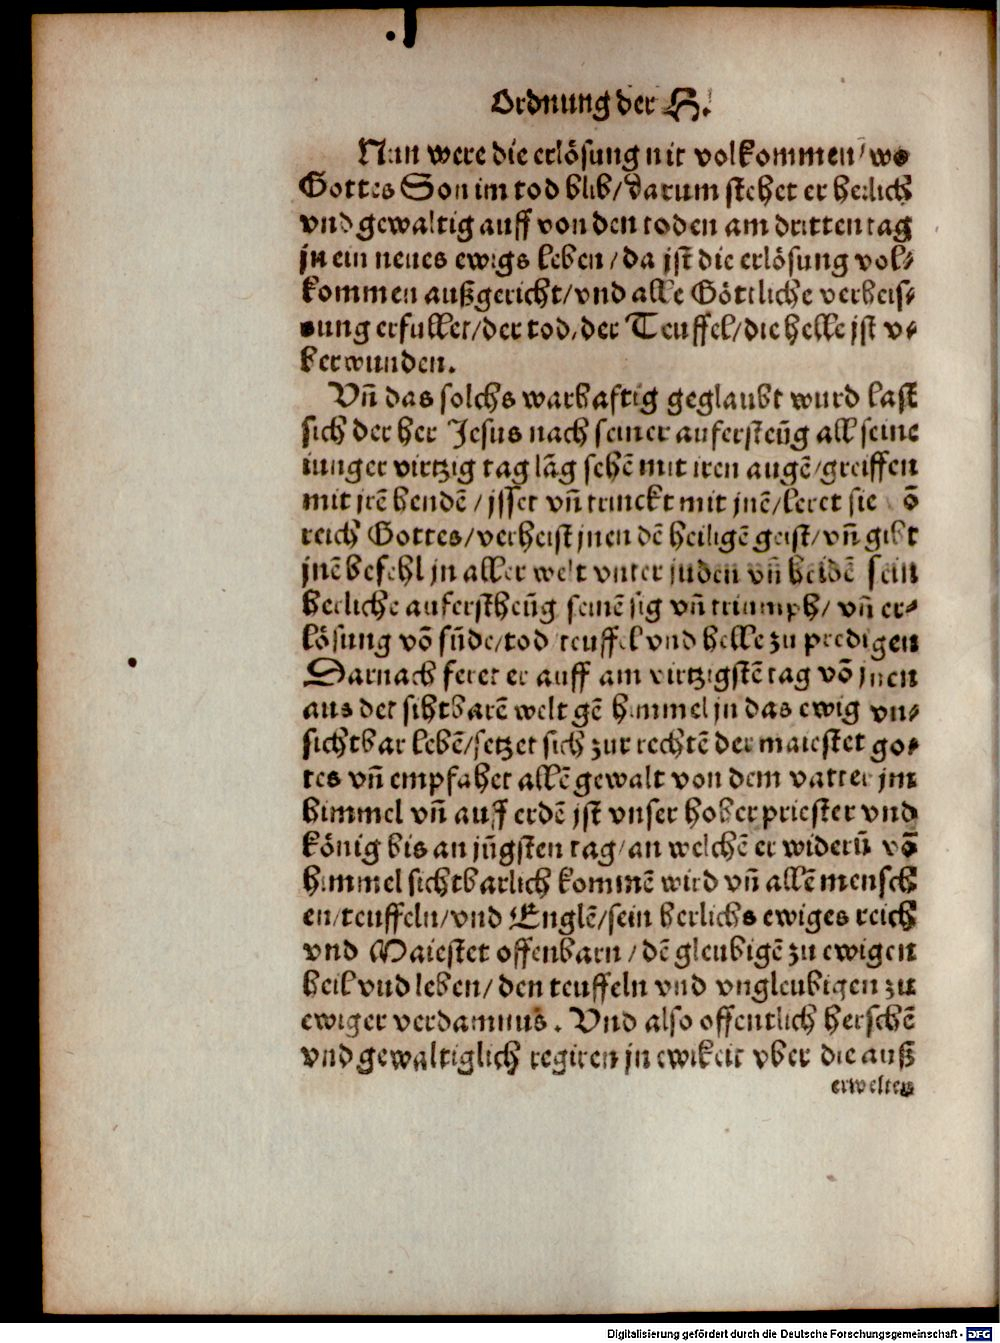 Ordnung der H.
Nun were die erlösung nit volkommen/ wo
Gottes Son im tod blib/ darum stehet er herlich
vnd gewaltig auff von den toden am dritten tag
jn ein neues ewigs leben/ da jst die erlösung vol⸗
kommen außgericht/ vnd alle Göttliche verheis⸗
sung erfullet/ der tod, der Teuffel/ die helle jst v⸗
berwunden.
Vñ das solchs warhaftig geglaubt wurd last
sich der her Jesus nach seiner aufersteūg all seine
iunger virtzig tag lāg sehē mit iren augē/ greiffen
mit jrē hendē/ jsset vñ trinckt mit jnē/ leret sie
reich Gottes/ verheist jnen dē heiligē geist/ vñ gibt
jnē befehl jn aller welt vnter juden vñ heidē sein
herliche auferstheūg seinē sig vñ triumph/ vñ er⸗
lösung vō sūde/ tod teuffel vnd helle zu predigen
Darnach feret er auff am virtzigstē tag vō jnen
aus der sihtbarē welt gē himmel jn das ewig vn⸗
sichtbar lebē/ setzet sich zur rechtē der maiestet go⸗
tes vñ empfahet allē gewalt von dem vatter jm
himmel vñ auff erdē jst vnser hoherpriester vnd
könig bis an jūgsten tag/ an welchē er widerū vō
himmel sichtbarlich kommē wird vñ allē mensch
en/ teuffeln/ vnd Englē/ sein herlichs ewiges reich
vnd Maiestet offenbarn/ dē gleubigē zu ewigen
heil vnd leben/ den teuffeln vnd vngleubigen zu
ewiger verdamnus. Vnd also offentlich herschē
vnd gewaltiglich regiren jn ewikeit vber die auß
erwelten
Digitalisierung gefördert durch die Deutsche Forschungsgemeinschaft - DFG